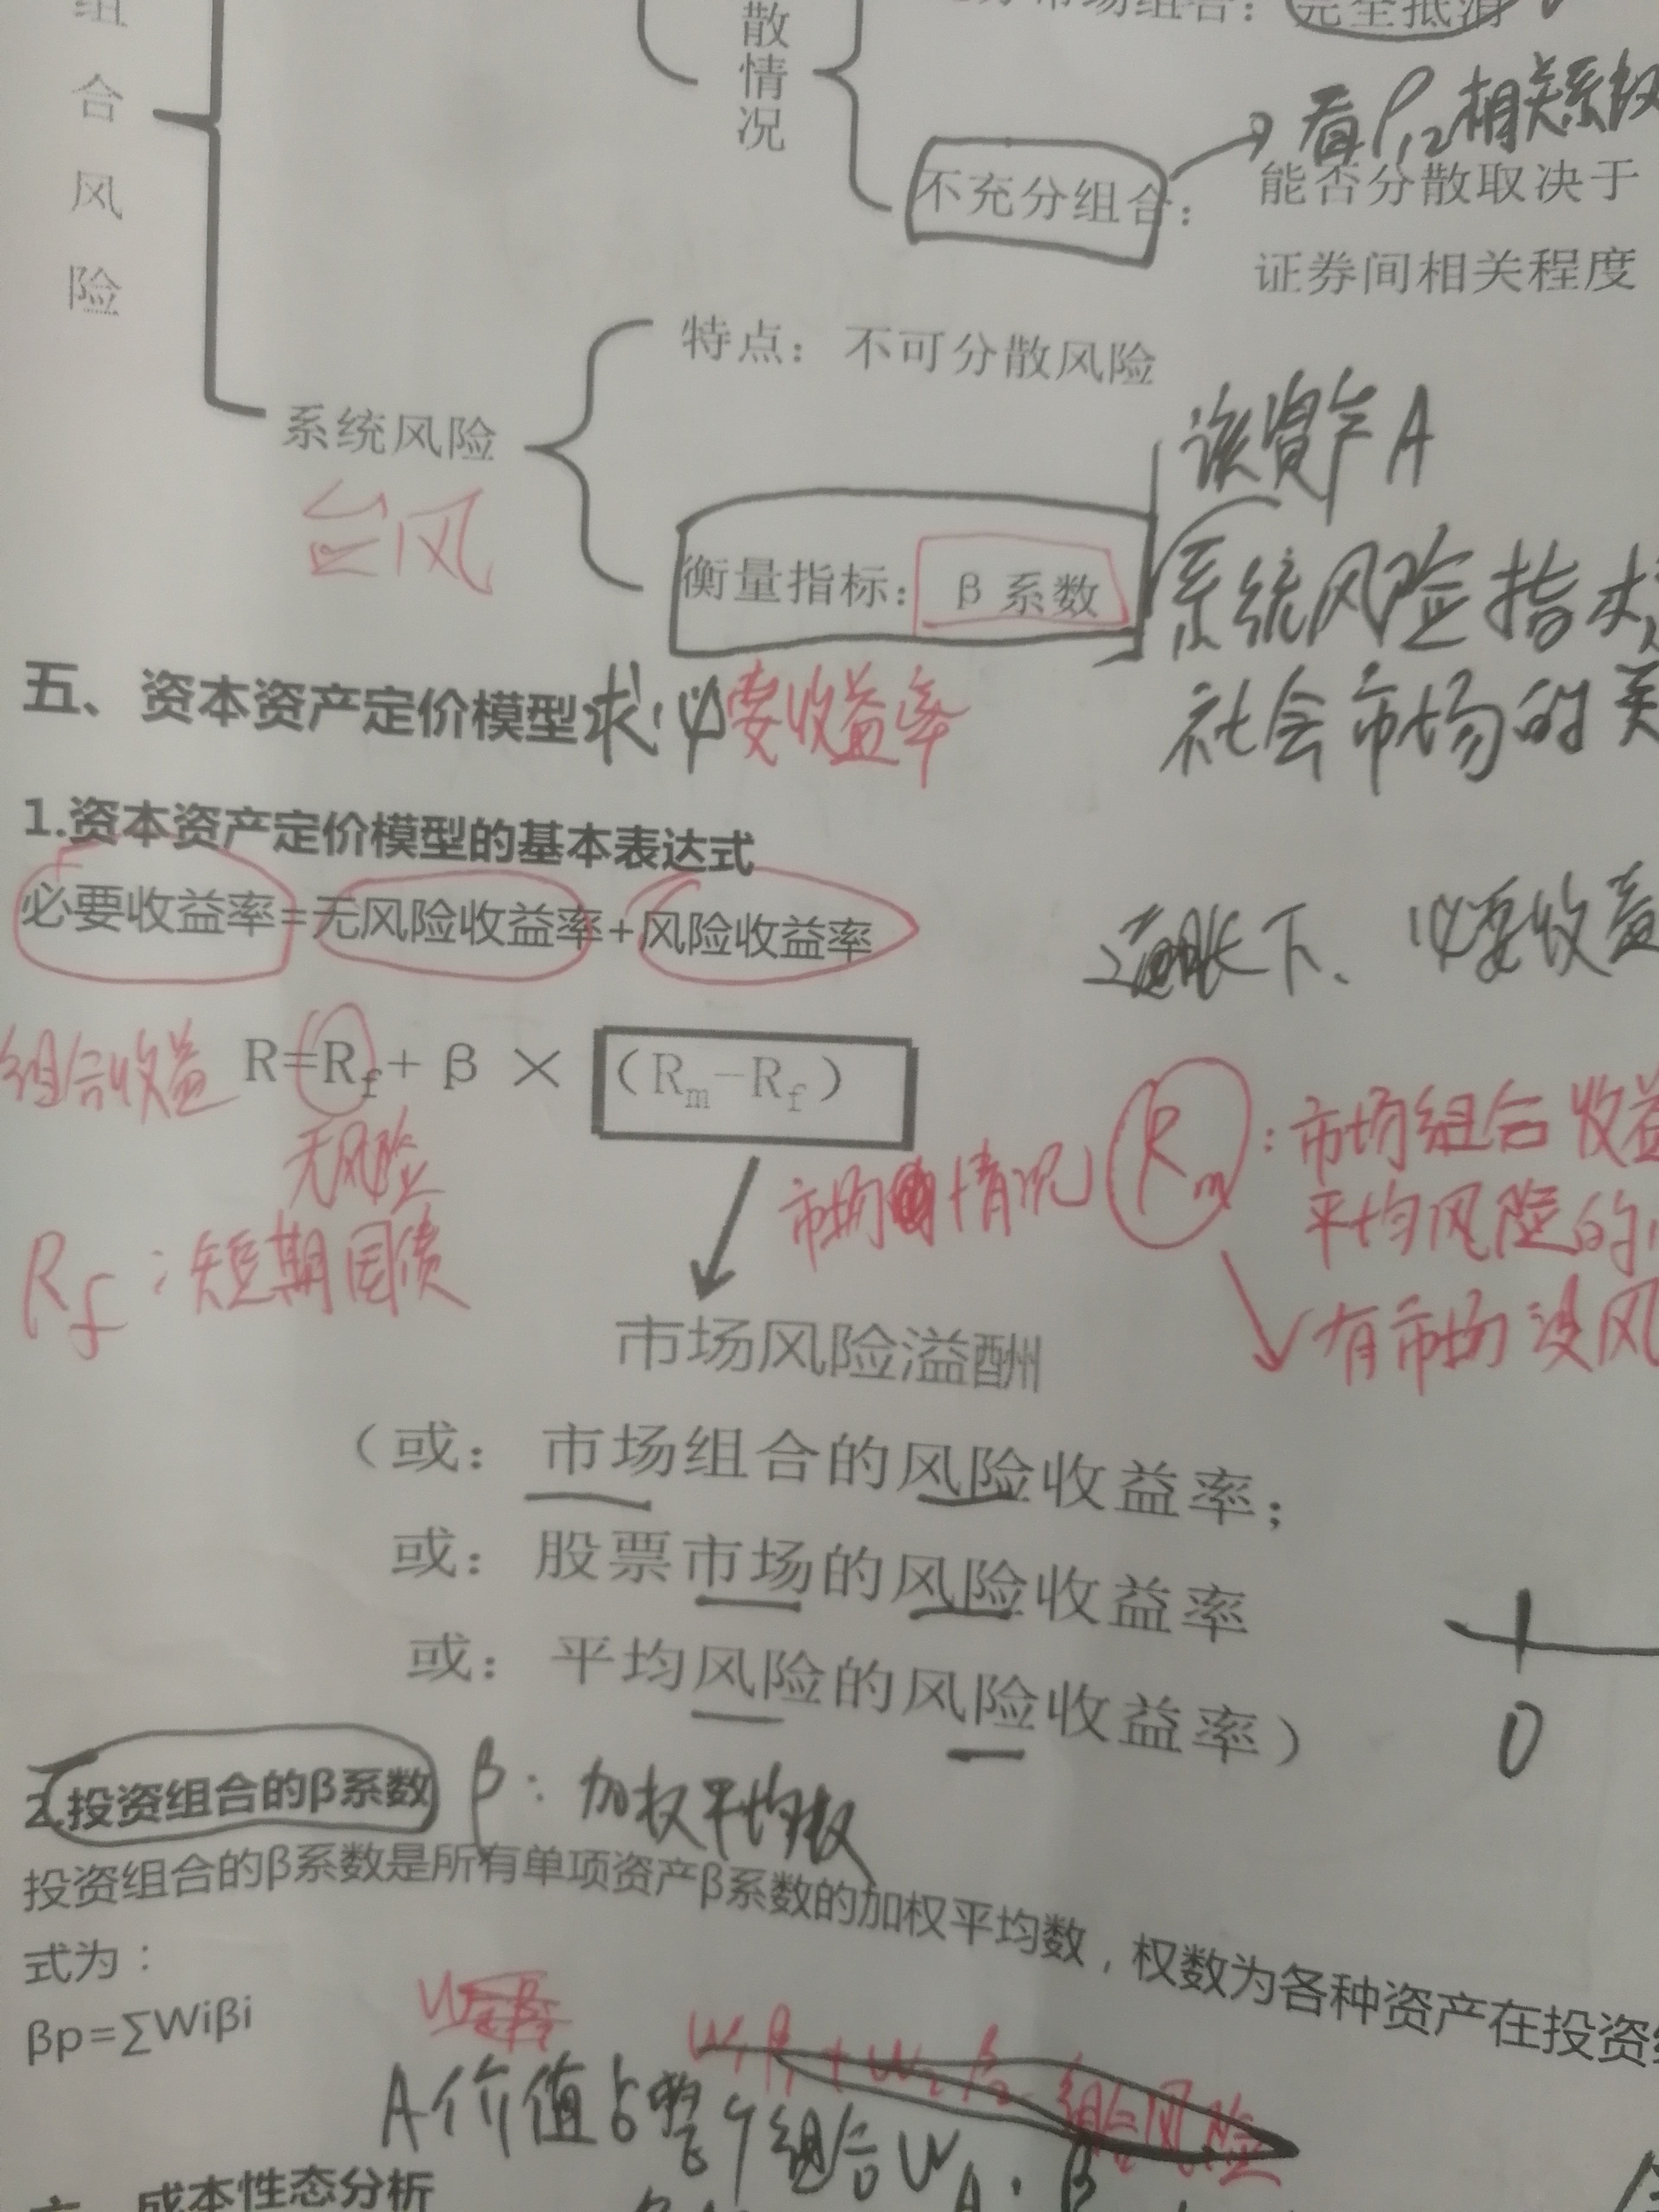 组
合
风
险
散
情
况
市场组合：完全抵消
看ρ12相关系数
不充分组合：
能否分散取决于
证券间相关程度
特点：不可分散风险
系统风险
台风
该资产A
衡量指标：β 系数
系统风险指
社会市场的
五、资本资产定价模型求必要收益率
1.资本资产定价模型的基本表达式
必要收益率=无风险收益率+风险收益率
下、必要收益
组合收益 R=Rf+β×（Rm-Rf）
无风险
Rf：短期国债
市场 情况
Rm：市场组合收益
平均风险的
有市场没风
市场风险溢酬
（或：市场组合的风险收益率；
或：股票市场的风险收益率
或：平均风险的风险收益率）
0
2.投资组合的β系数 β：加权平均数
投资组合的β系数是所有单项资产β系数的加权平均数，权数为各种资产在投资
式为：
βp=∑Wiβi
W1β1+W2β2 组合风险
A价值占整个组合WA·β
成本性态分析